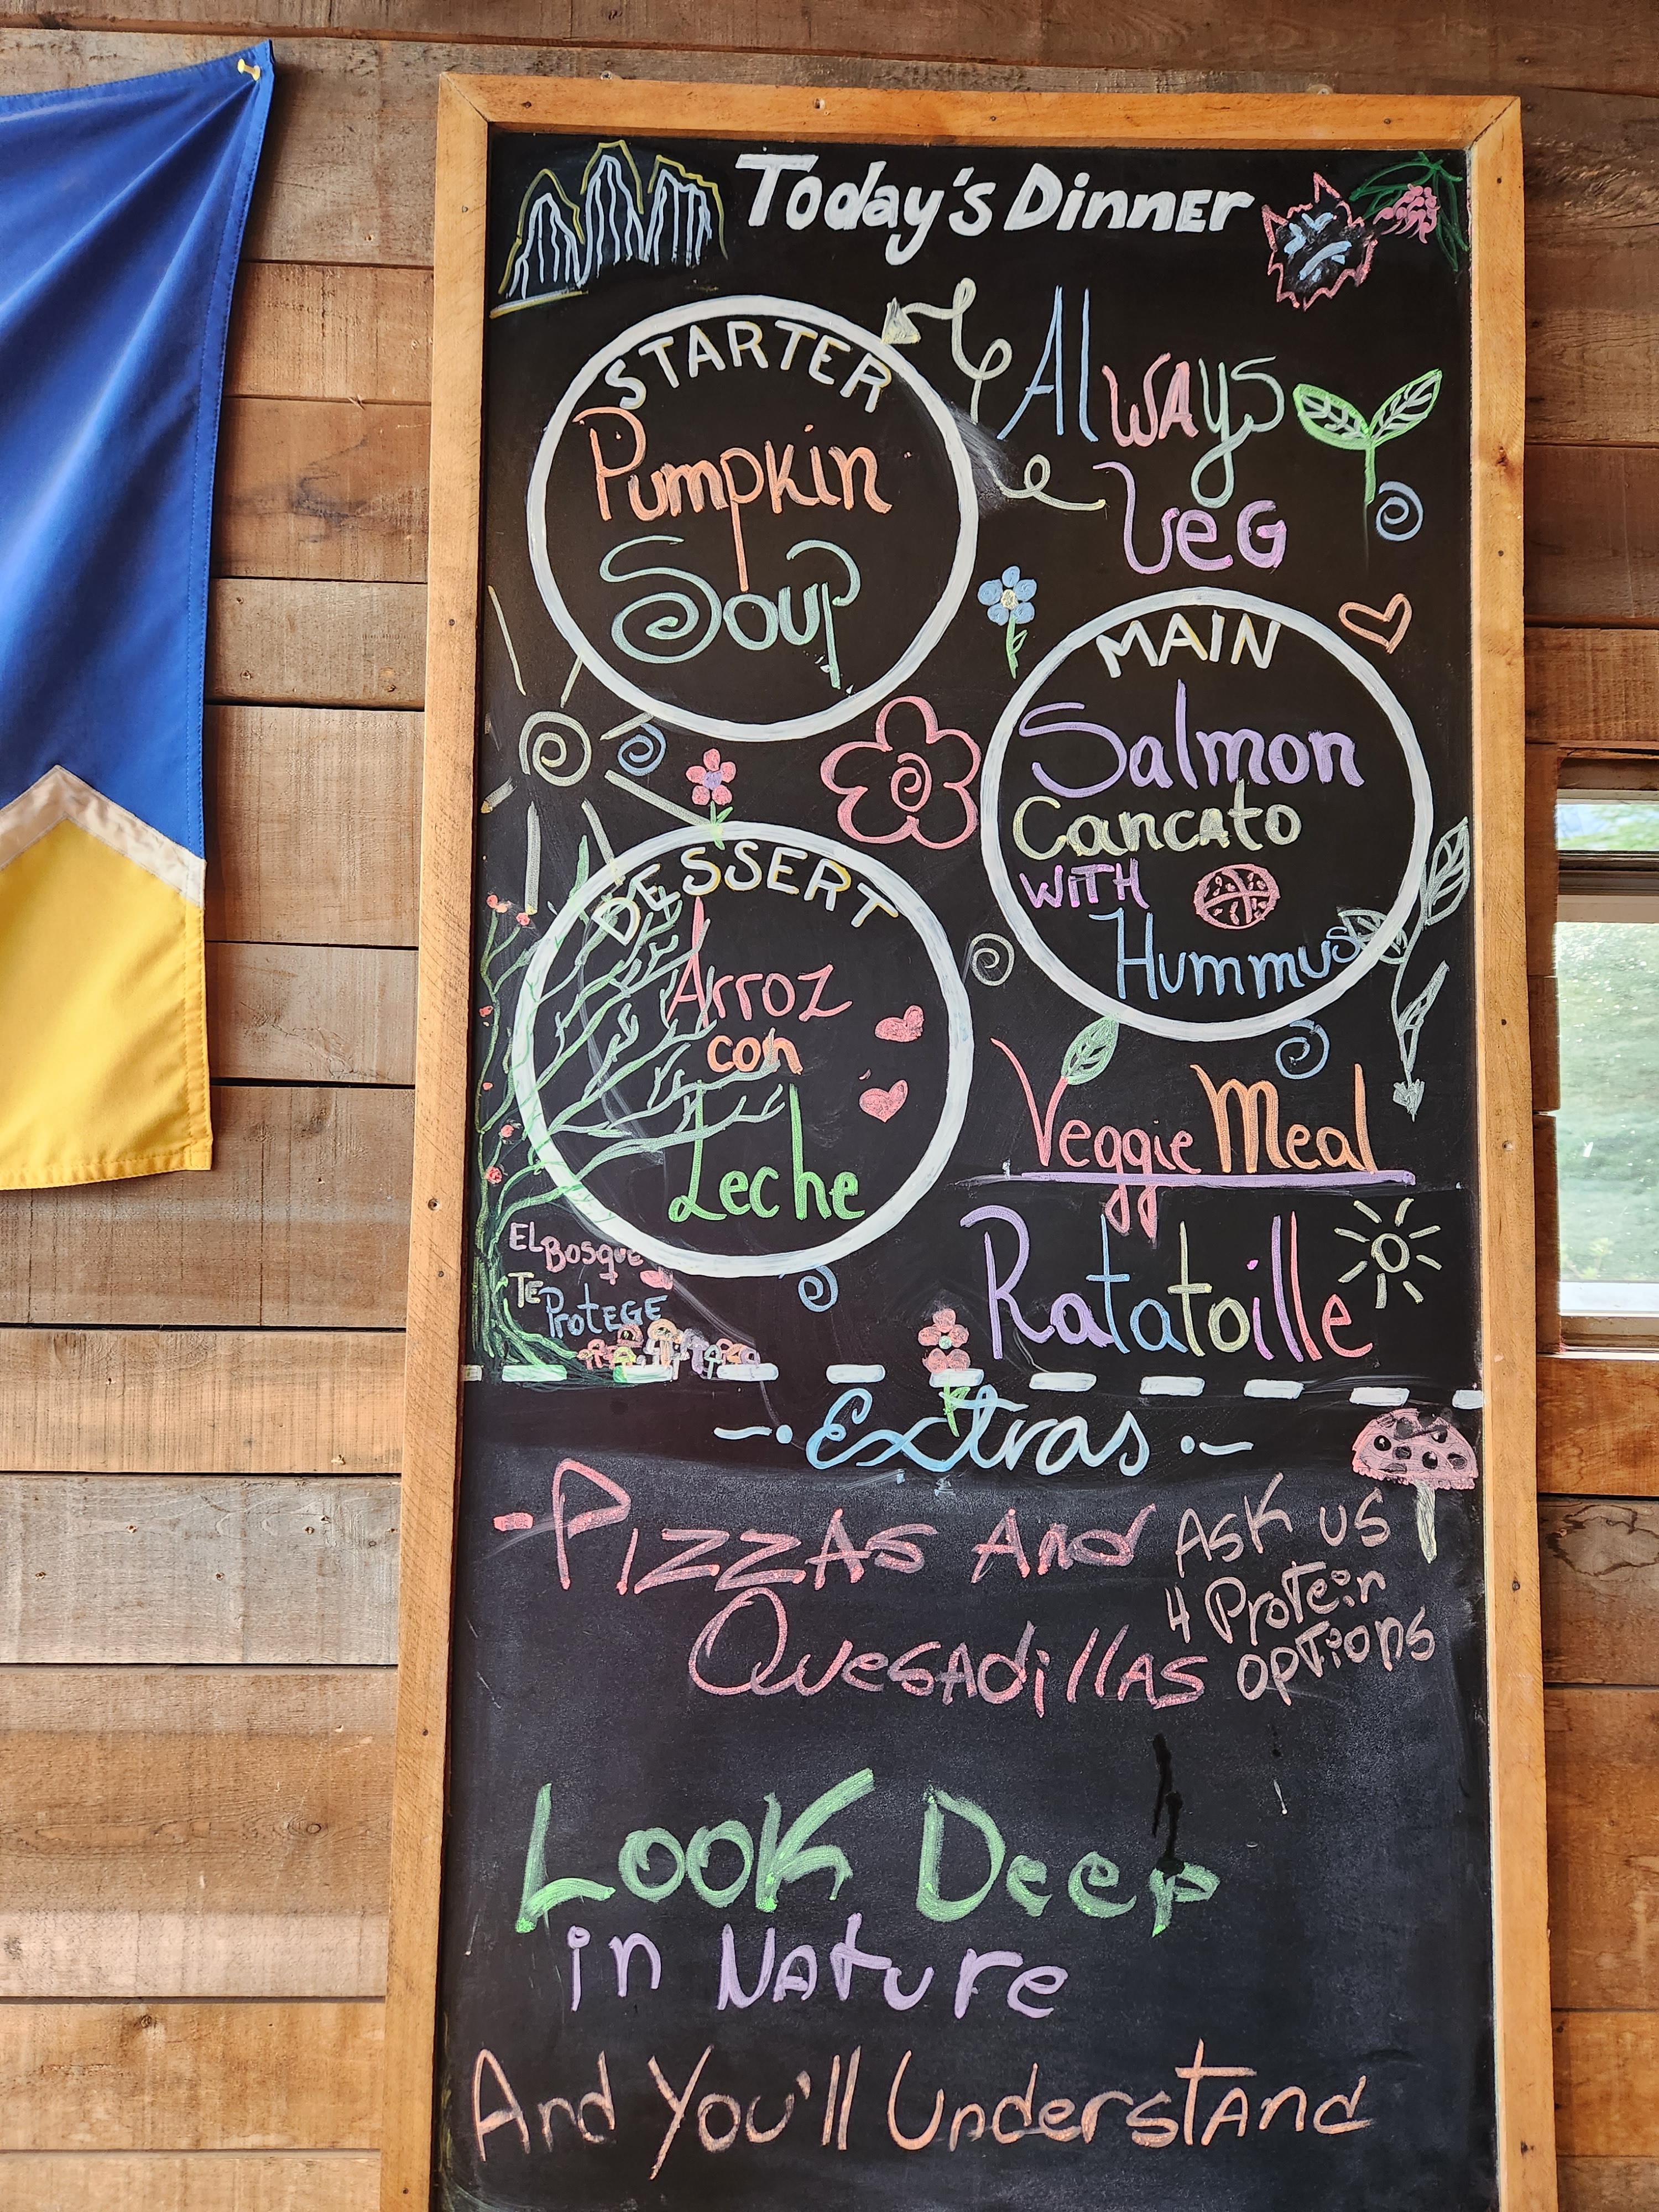 Today's Dinner
STARTER
Pumpkin
Soup
Always
Veg
MAIN
Salmon
Cancato
WITH
Hummus
DESSERT
Arroz
con
Leche
Veggie Meal
Ratatoille
EL BOSQUE
TE
PROTEGE
Extras
-PIZZAS And
QuesAdillAS
Ask us
4 Protein
options
Look Deep
in Nature
And You'll Understand